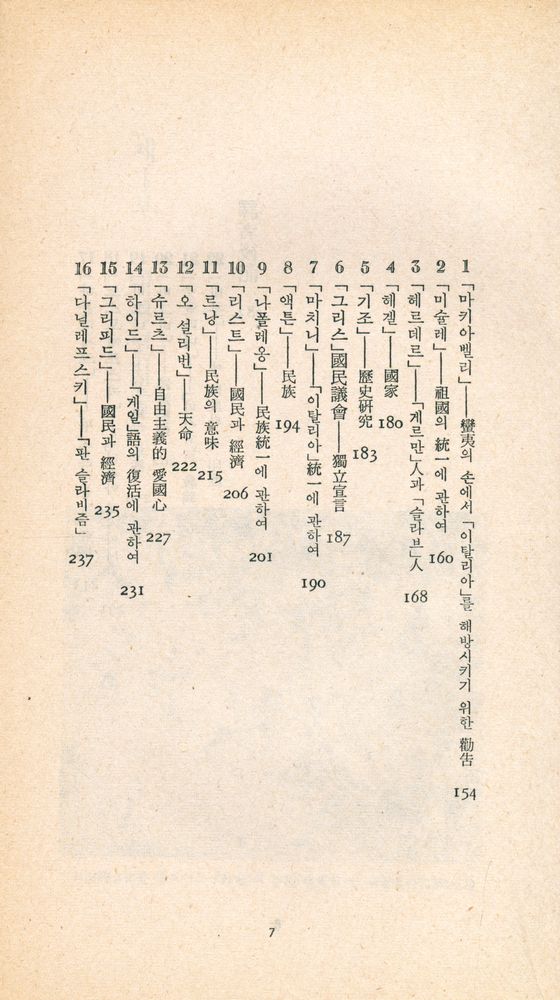 1 「마키아벨리」——蠻夷의 손에서 「이탈리아」를 해방시키기 위한 勸告 154
2 「미슐레」——祖國의 統一에 관하여 160
3 「헤르데르」——「게르만」人과 「슬라브」人 168
4 「헤겔」——國家 180
5 「기조」——歷史硏究 183
6 「그리스」國民議會——獨立宣言 187
7 「마치니」——「이탈리아」統一에 관하여 190
8 「액튼」——民族 194
9 「나폴레옹」——民族統一에 관하여 201
10 「리스트」——國民과 經濟 206
11 「르낭」——民族의 意味 215
12 「오 설리번」——天命 222
13 「슈르츠」——自由主義的 愛國心 227
14 「하이드」——「게일」語의 復活에 관하여 231
15 「그리피드」——國民과 經濟 235
16 「다닐레프스키」——「판 슬라비즘」 237
7